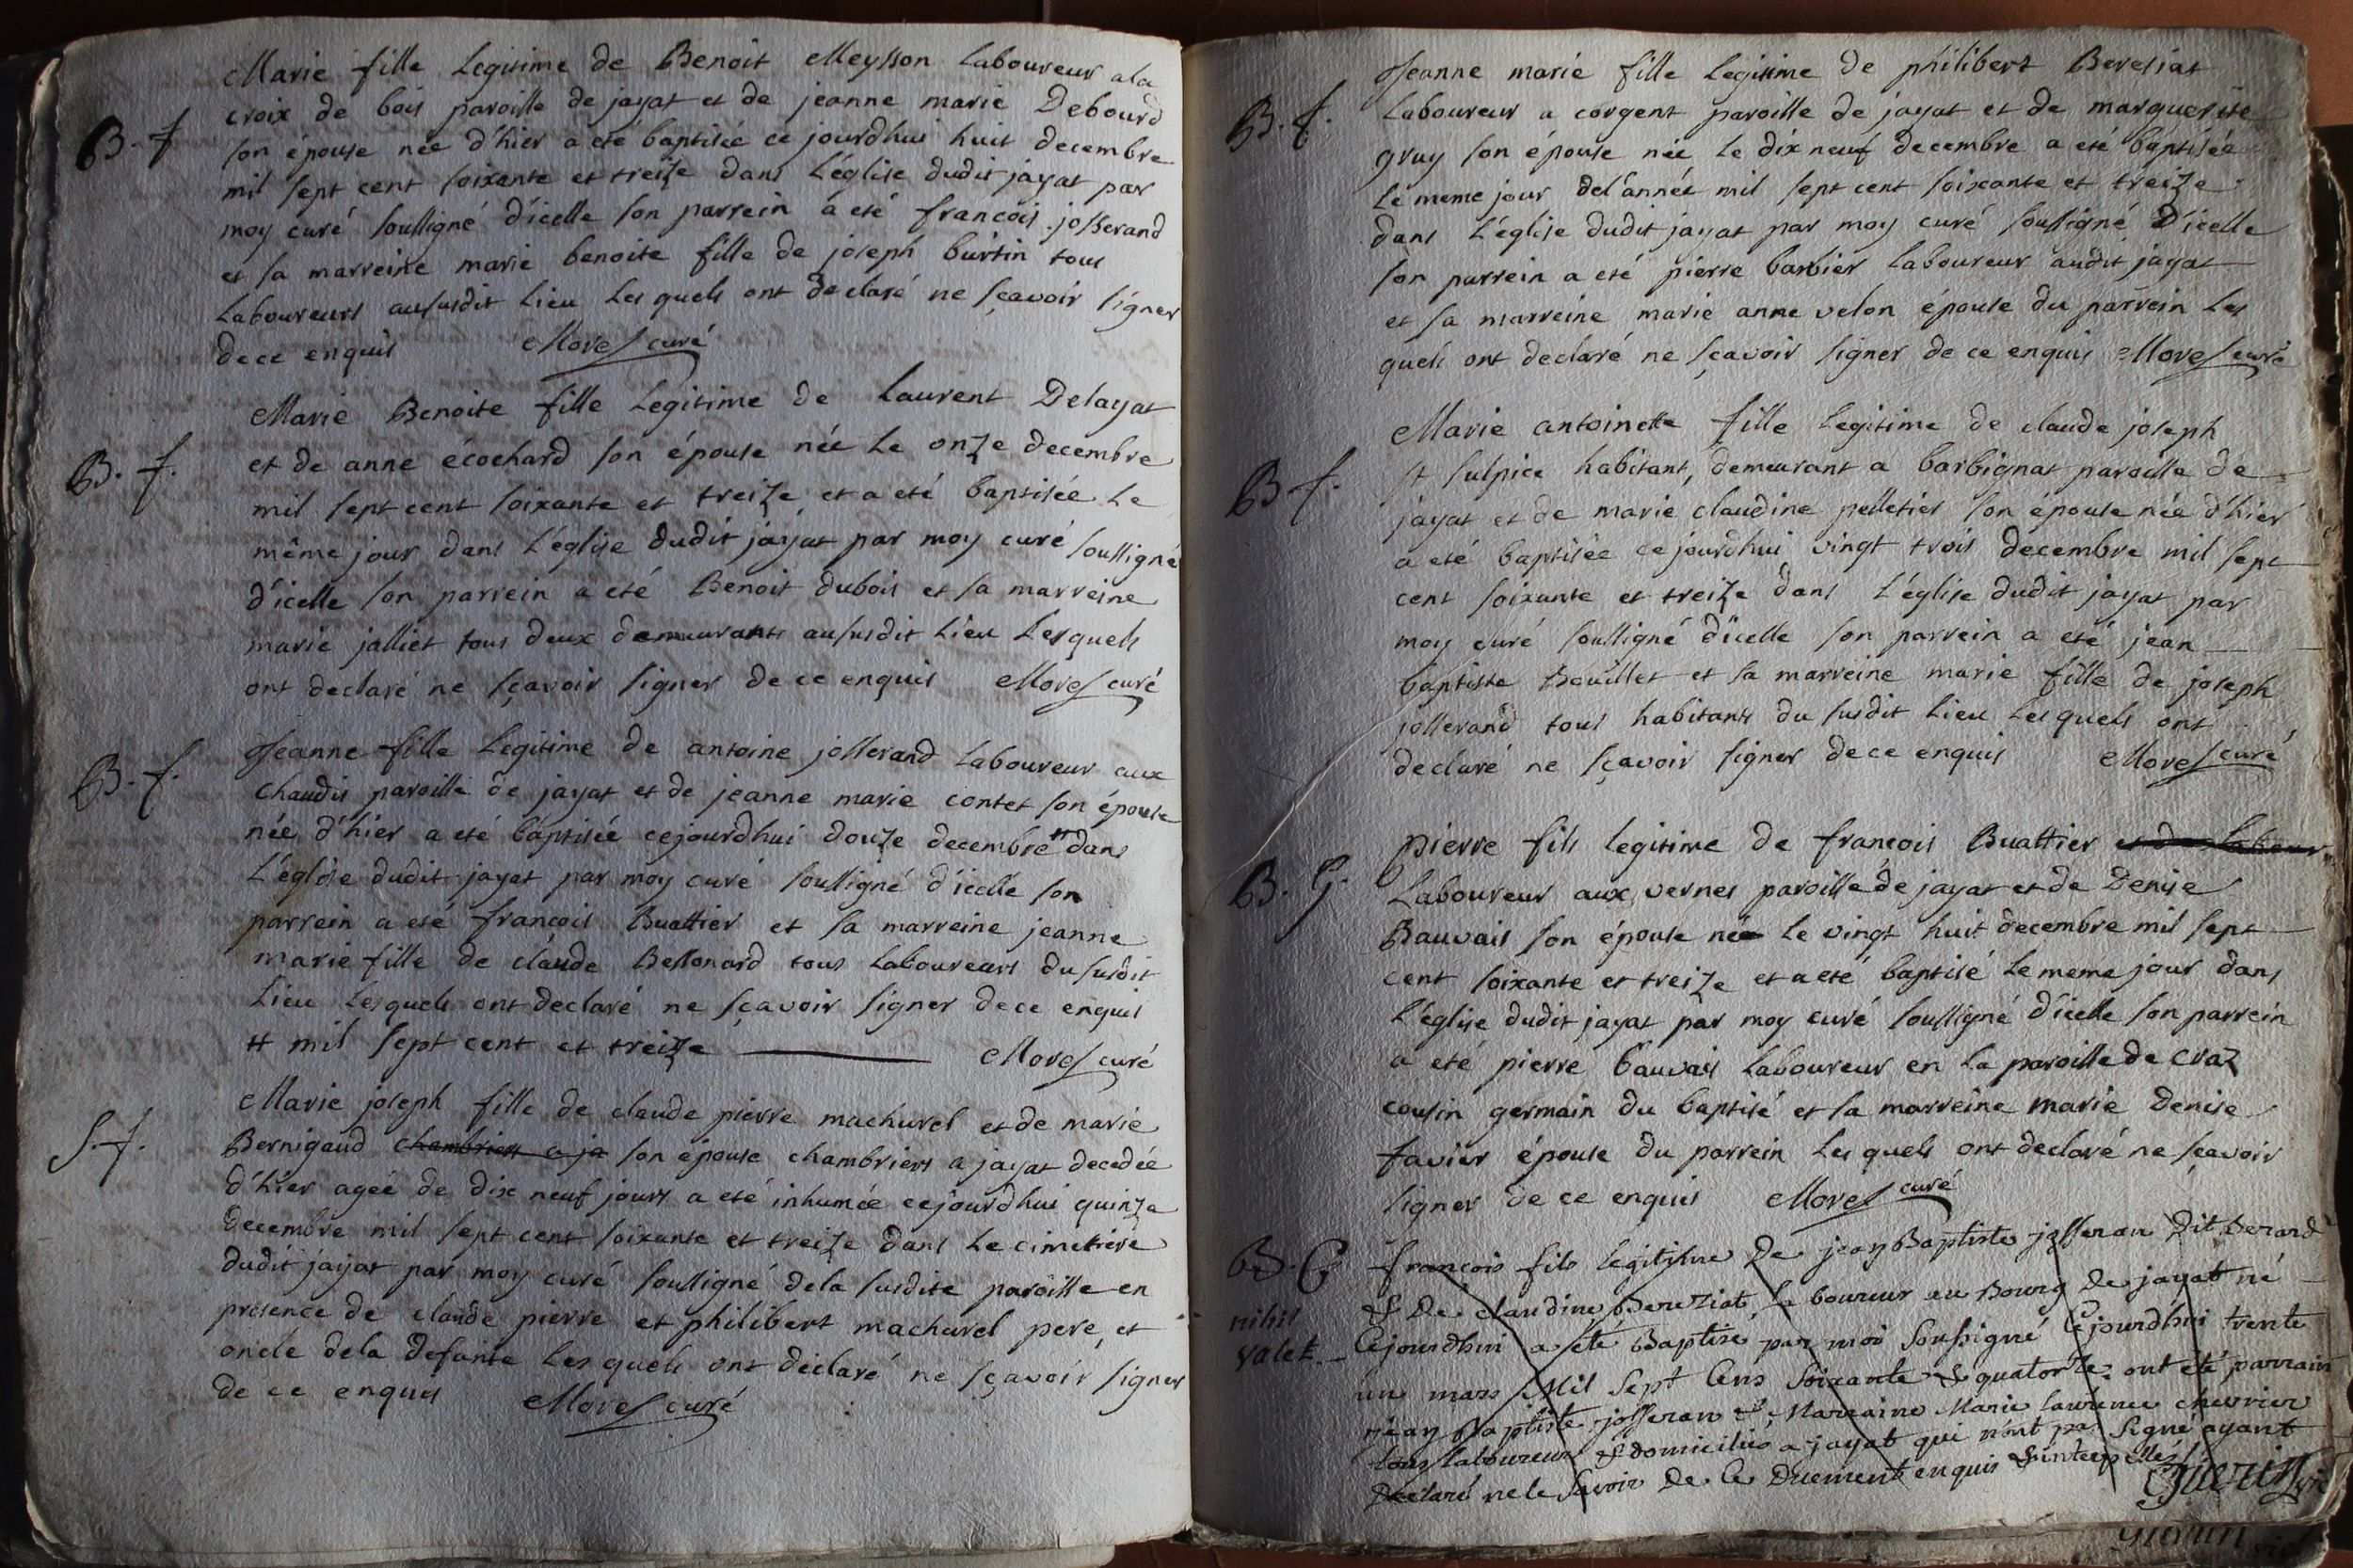 Marie fille Legitime de Benoit Meysson Laboureur a la
B. f
croix de bois paroisse de jayat et de jeanne marie Debourd
son épouse née d'hier a eté baptisée ce jourdhui huit decembre
mil sept cent soixante et treize dans L'église dudit jayat par
moy curé soussigné d'icelle son parrein a eté francois josserand
et sa marreine marie benoite fille de joseph burtin tous
Laboureurs aususdit Lieu Les quels ont declaré ne sçavoir signer
de ce enquis Morel curé
Marie Benoite fille Legitime de Laurent Delayat
B. f.
et de anne écochard son épouse née Le onze decembre
mil sept cent soixante et treize et a eté baptisée Le
même jour dans L'église dudit jayat par moy curé soussigné
d'icelle son parrein a eté Benoit dubois et sa marreine
marie jalliet tous deux demeurants ausudit Lieu Lesquels
ont declaré ne sçavoir signer de ce enquis Morel curé
Jeanne fille Legitime de antoine josserand Laboureur aux
B. f.
Chaudis paroisse de jayat et de jeanne marie contet son épouse
née d'hier a eté baptisée cejourdhui douze decembre # dans
L'église dudit jayat par moy curé soussigné d'icelle son
parrein a eté francois Buattier et sa marreine jeanne
marie fille de claude Bessonard tous Laboureurs dususdit
Lieu Lesquels ont declaré ne sçavoir signer de ce enquis
# mil sept cent et treize Morel curé
Marie joseph fille de claude pierre machurel et de marie
S. f.
Bernigaud chambriers a ja son épouse chambriers a jayat decedée
d'hier agée de dix neuf jours a eté inhumée cejourdhui quinze
decembre mil sept cent soixante et treize dans Le cimetiere
dudit jayat par moy curé soussigné dela susdite paroisse en
presence de claude pierre et philibert machurel pere et
oncle dela defunte Les quels ont declaré ne sçavoir signer
de ce enquis Morel curé
Jeanne marie fille Legitime de philibert Beresiat
B. f.
Laboureur a corgent paroisse de jayat et de marguerite
gruy son épouse née Le dix neuf decembre a eté baptisée
Le meme jour del'année mil sept cent soixante et treize
dans L'église dudit jayat par moy curé soussigné D'icelle
son parrein a eté pierre barbier Laboureur audit jayat
et sa marreine marie anne velon épouse du parrein Les
quels ont declaré ne sçavoir signer de ce enquis Morel curé
Marie antoinette fille Legitime de claude joseph
B. f.
st sulpice habitant, demeurant a barbignat paroisse de
jayat et de marie claudine pelletier son épouse née d'hier
a eté baptisée cejourdhui vingt trois decembre mil sept
cent soixante et treize dans L'église dudit jayat par
moy curé soussigné d'icelle son parrein a eté jean
baptiste Bouillet et sa marreine marie fille de joseph
josserand tous habitants du susdit Lieu Lesquels ont
declaré ne sçavoir signer de ce enquis Morel curé
pierre fils Legitime de francois Buattier
B. G.
Laboureur aux vernes paroisse de jayat et de Denise
Bauvais son épouse né Le vingt huit decembre mil sept
cent soixante et treize et a eté baptisé Le meme jour dans
L'église dudit jayat par moy curé soussigné d'icelle son parrein
a eté pierre bauvais Laboureur en La paroisse de craz
cousin germain du baptisé et sa marreine marie Denise
favier épouse du parrein Les quels ont declaré ne sçavoir
signer de ce enquis Morel curé
B. G
nihil
valet
françois fils legitime De jean Baptiste josseran Dit berand
& De claudine Bereziat, laboureur au Bourg De jayat né
Cejourdhui a été Baptisé par moi Soussigné Cejourdhui trente
un mars Mil Sept Cens Soixante & quatorze. ont été parrain
jean Baptiste josseran & Marraine Marie laurence chevrier
tous laboureurs & domiciliés a jayat qui n'ont pas Signé ayant
Declaré ne le Savoir De Ce Duement enquis & interpellés
Guerin